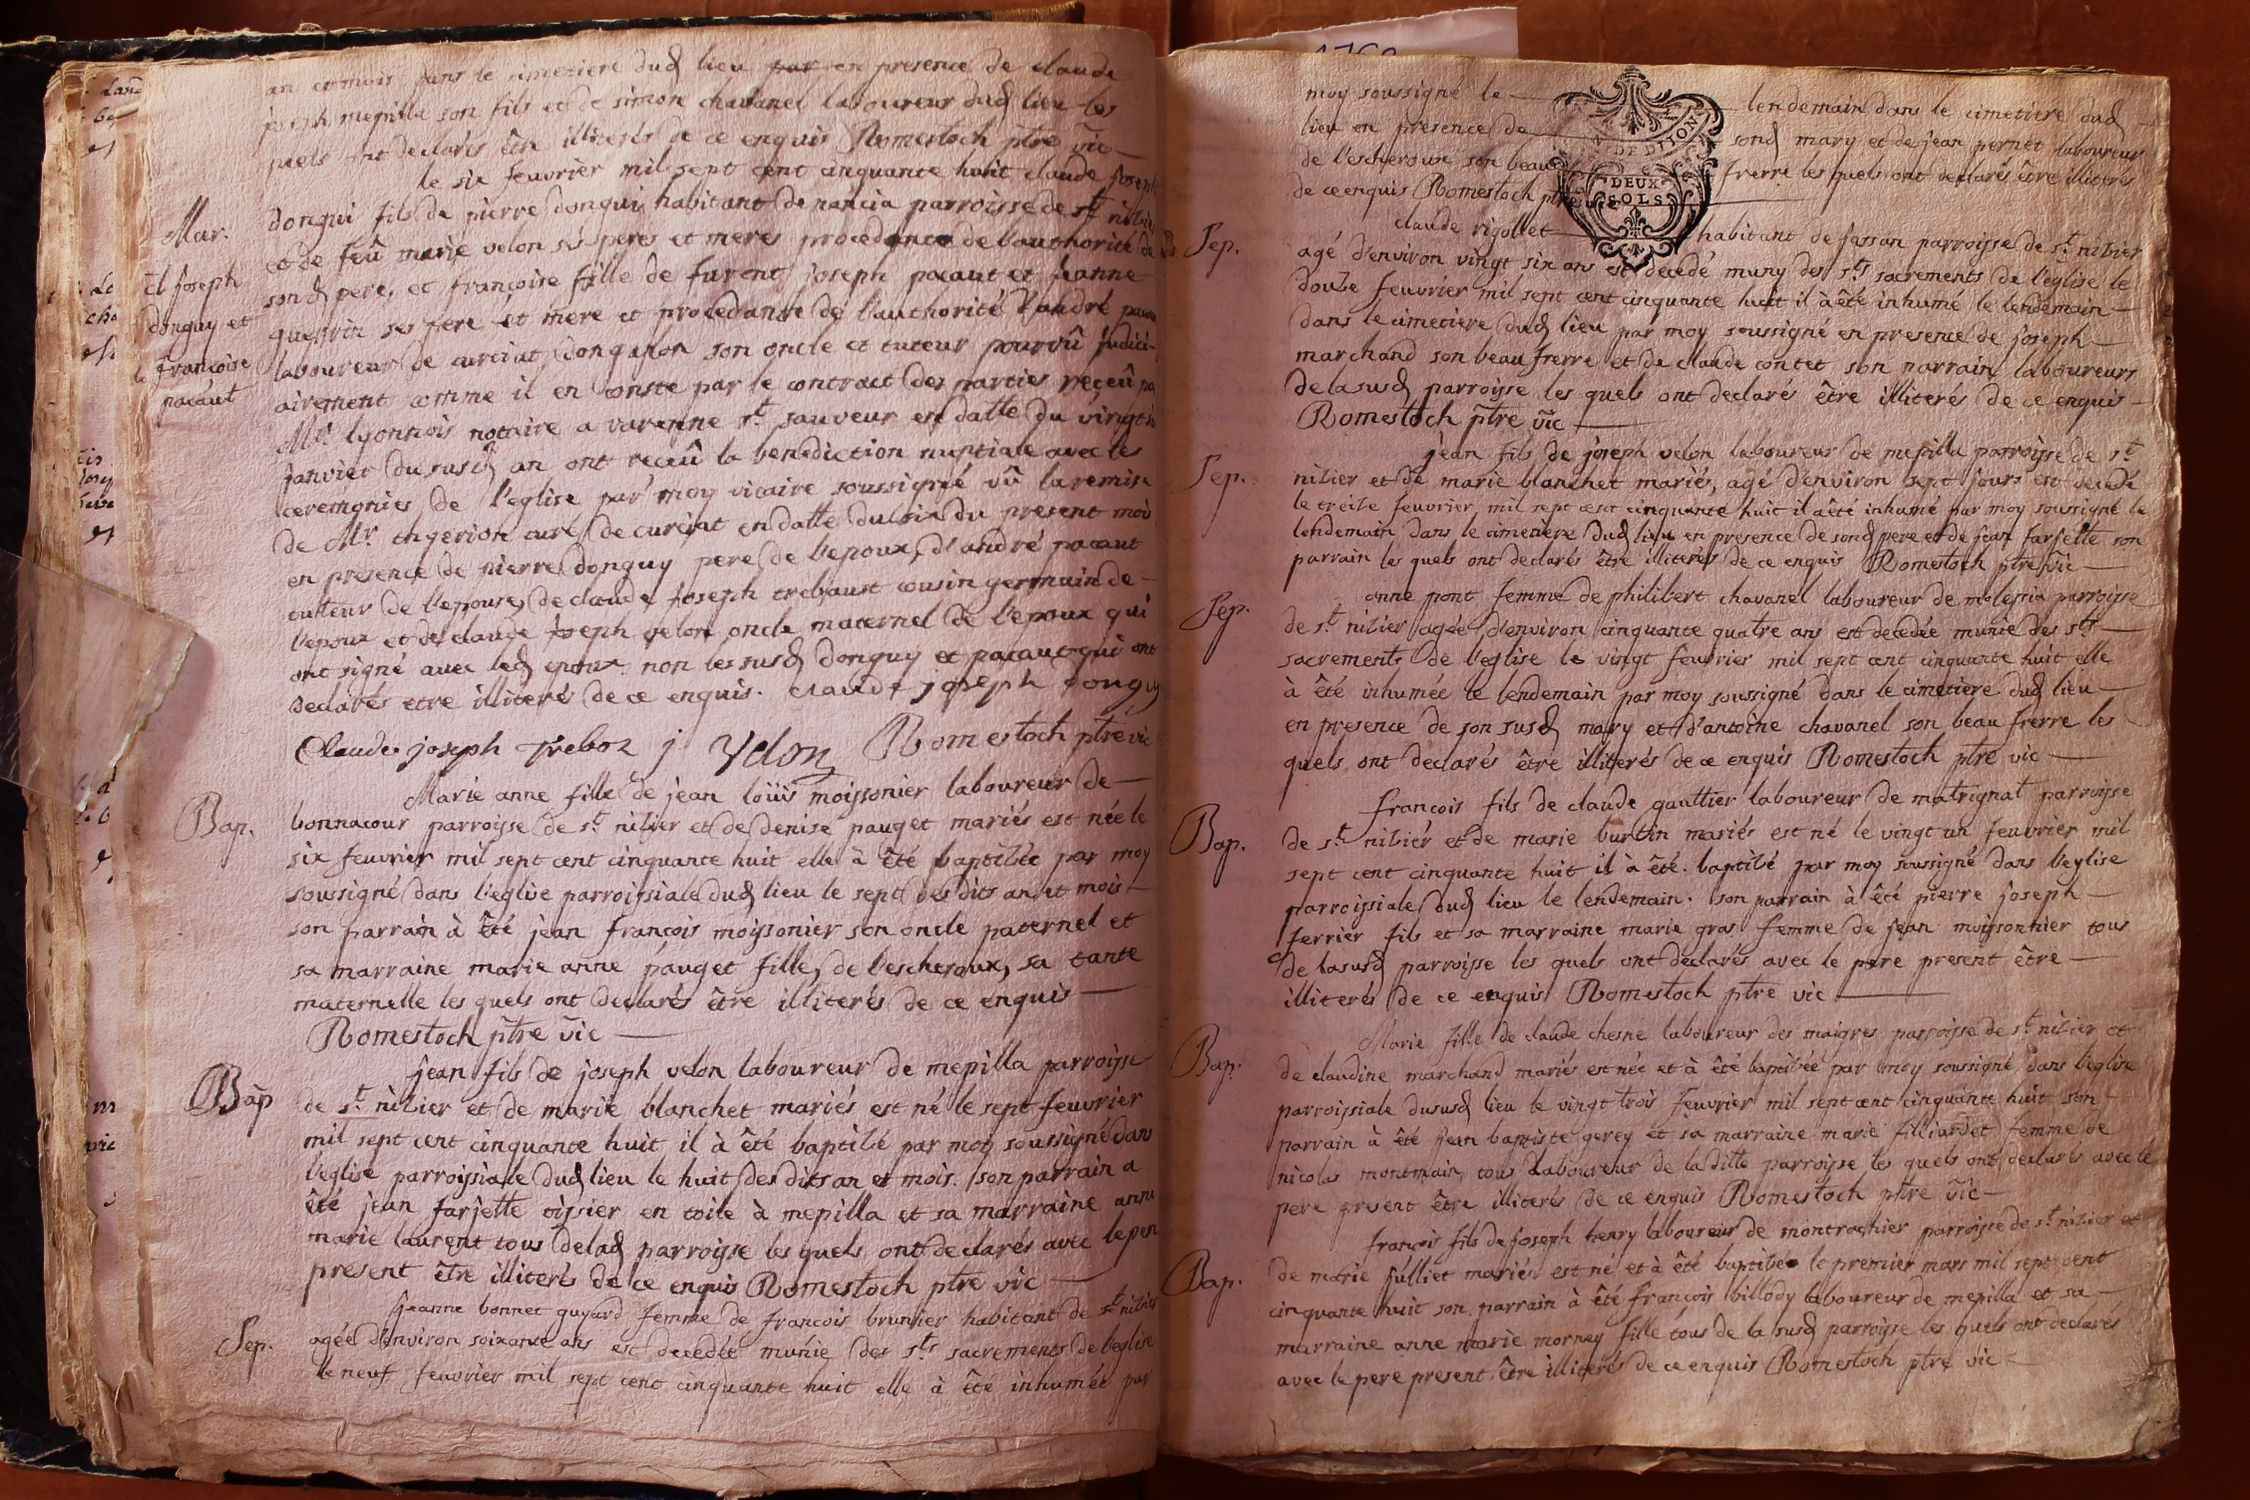 an et mois dans le cimetiere dud lieu en presence de claude
joseph mepilla son fils et de simon chavanel laboureur dud lieu les
quels ont declarés être illiterés de ce enquis Romestoch ptre vic
le six feuvrier mil sept cent cinquante huit claude joseph
Mar.
cl joseph
donguy et
françoise
pacaut
donqui fils de pierre donqui habitant de nancia parroisse de st nizier
et de feû marie velon ses peres et meres procedance de l'authorité de
sond pere, et françoise fille de furent joseph pacaut et jeanne
guerrin ses pere et mere et procedante de l'authorité d'andré pacau
laboureur de curciat dongalon son oncle et tuteur pourvû judici-
airement comme il en conste par le contract des parties reçeû pa
Mr. lyonnois notaire a varenne st sauveur en datte du vingt
janvier du susd an ont reçeû la benediction nuptiale avec les
ceremonies de l'eglise par moy vicaire soussigné vû la remise
de Mr. engerion curé de curciat en datte du six du present mois
en presence de pierre donguy pere de l'epoux, d'andré pacaut
tutteur de l'epouse, de claude joseph trebaust cousin germain de
l'epoux et de claude joseph velon oncle maternel de l'epoux qui
ont signé avec led epoux non les susd donguy et pacaut qui ont
declarés etre illiteré de ce enquis. claude joseph donguy
Claude joseph treboz j Velon Romestoch ptre vic
Marie anne fille de jean loüis moissonier laboureur de
Bap.
bonnacour parroisse de st nizier et de denise pauget mariés est née le
six feuvrier mil sept cent cinquante huit elle à êté baptisée par moy
soussigné dans l'eglise parroissiale dud lieu le sept des dits an et mois
son parrain à êté jean françois moissonier son oncle paternel et
sa marraine marie anne pauget fille, de l'escheroux, sa tante
maternelle les quels ont declarés être illiterés de ce enquis
Romestoch ptre vic
jean fils de joseph velon laboureur de mepilla parroisse
Bap
de st nizier et de marie blanchet mariés est né le sept feuvrier
mil sept cent cinquante huit il à êté baptisé par moy soussigné dans
l'eglise parroissiale dud lieu le huit des dits an et mois. son parrain a
êté jean farjette tissier en toile à mepilla et sa marraine anne
marie laurent tous de lad parroisse les quels ont declarés avec le pere
present être illiterés de ce enquis Romestoch ptre vic
jeanne bonnet guyard femme de francois brunier habitant de st nizier
Sep.
agée d'environ soixante ans est decedée munie des sts sacrements de l'eglise
le neuf feuvrier mil sept cent cinquante huit elle à êté inhumée par
moy soussigné le lendemain dans le cimetiere dud
lieu en presence de sond mary et de jean pernet laboureur
de l'escheroux son beau frerre les quels ont declarés être illiterés
de ce enquis Romestoch ptre
DE DIJON
DEUX
SOLS
claude rigollet habitant de jassan parroisse de st nizier
Sep.
agé d'environ vingt six ans est decedé muny des sts sacrements de l'eglise le
douze feuvrier mil sept cent cinquante huit il à êté inhumé le lendemain
dans le cimetiere dud lieu par moy soussigné en presence de joseph
marchand son beau frerre et de claude contet son parrain laboureurs
de la susd parroisse les quels ont declarés être illiterés de ce enquis
Romestoch ptre vic
jean fils de joseph velon laboureur de mepilla parroisse de st
Sep.
nizier et de marie blanchet mariés, agé d'environ sept jours est decedé
le treize feuvrier mil sept cent cinquante huit il a êté inhumé par moy soussigné le
lendemain dans le cimetiere dud lieu en presence de sond pere et de jean farjette son
parrain les quels ont declarés être illiterés de ce enquis Romestoch ptre vic
anne pont femme de philibert chavanel laboureur de molessia parroisse
Sep.
de st nizier agée d'environ cinquante quatre ans est decedée munie des sts
sacrements de l'eglise le vingt feuvrier mil sept cent cinquante huit elle
à êté inhumée le lendemain par moy soussigné dans le cimetiere dud lieu
en presence de son susd mary et d'antoine chavanel son beau frerre les
quels ont declarés être illiterés de ce enquis Romestoch ptre vic
francois fils de claude gauttier laboureur de matrignat parroisse
Bap.
de st niziér et de marie burtin mariés est né le vingt un feuvrier mil
sept cent cinquante huit il à êté baptisé par moy soussigné dans l'eglise
parroissiale dud lieu le lendemain. son parrain à êté pierre joseph
ferrier fils et sa marraine marie gras femme de jean moissonnier tous
de la susd parroisse les quels ont declarés avec le pere present être
illiterés de ce enquis Romestoch ptre vic
Marie fille de claude chesne laboureur des maigres parroisse de st nizier et
Bap.
de claudine marchand mariés est née et à êté baptisée par moy soussigné dans l'eglise
parroissiale du susd lieu le vingt trois feuvrier mil sept cent cinquante huit son
parrain à êté jean baptiste gerey et sa marraine marie filliardet femme de
nicolas montmain, tous laboureur de la ditte parroisse les quels ont declarés avec le
pere present être illiterés de ce enquis Romestoch ptre vic
françois fils de joseph henry laboureur de montrachier parroisse de st nizier et
Bap.
de marie julliet mariés est né et à êté baptisée le premier mars mil sept cent
cinquante huit son parrain à êté françois billody laboureur de mepilla et sa
marraine anne marie mornay fille tous de la susd parroisse les quels ont declarés
avec le pere present être illiterés de ce enquis Romestoch ptre vic